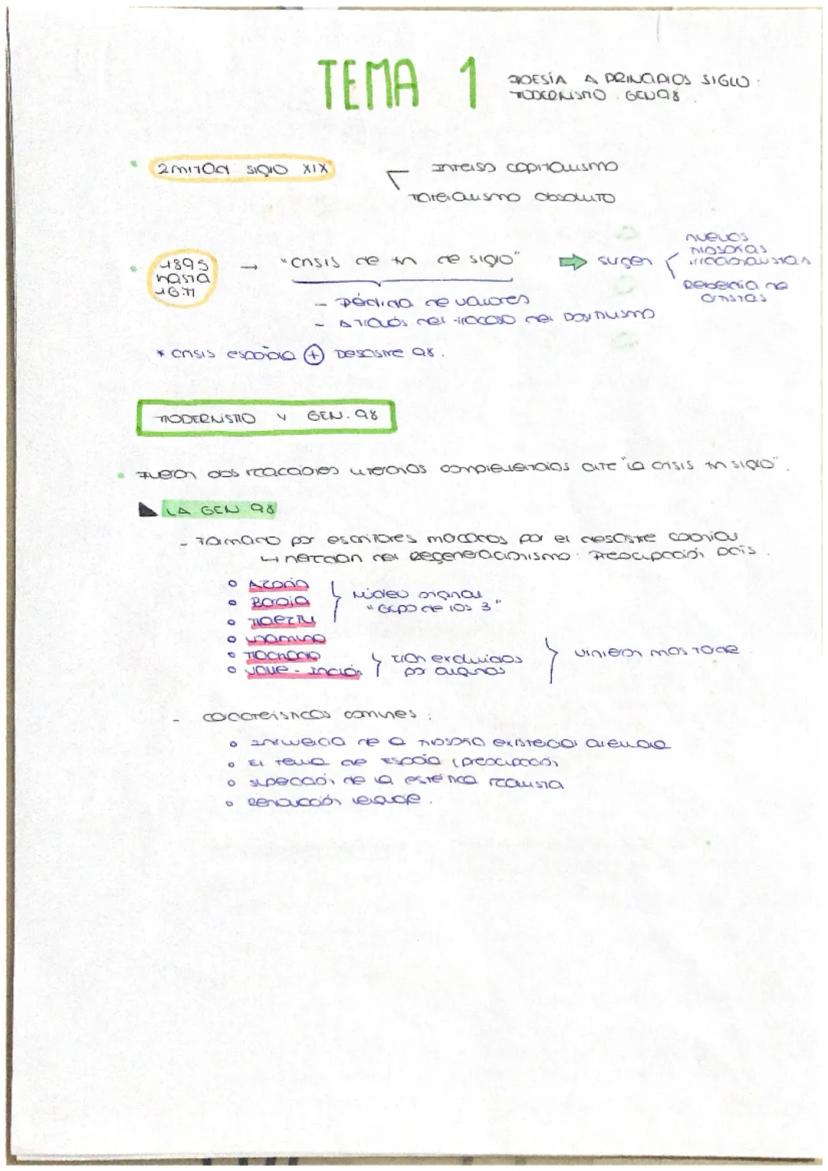 TEMA 1
POESÍA A PRINCIPIOS SIGLO:
MODERNISMO. GEN98.
2 mitad siglo XIX
Intenso capitalismo
Materialismo absoluto
1895
hasta
→ "crisis de fin de siglo" ⇒ surgen
nuevos
filosofías
irracionalistas
Rebeldía
artistas
- Pérdida de valores
- A través del fracaso del positivismo
* crisis española + Desastre 98.
MODERNISMO Y GEN. 98
• Fueron dos reacciones literarias complementarias ante "la crisis fin siglo".
LA GEN 98
- Formado por escritores marcados por el desastre colonial
↳ heredan del Regeneracionismo: Preocupación país.
○ Azorín
○ Baroja
○ Maeztu
Núcleo original
"Grupo de los 3"
○ Unamuno
○ Machado
○ Valle-Inclán
excluidos
por algunos
vinieron más tarde
- características comunes:
○ Influencia de la filosofía existencial alemana
○ El tema de España (preocupación
○ superación de la estética realista
○ Renovación lenguaje.